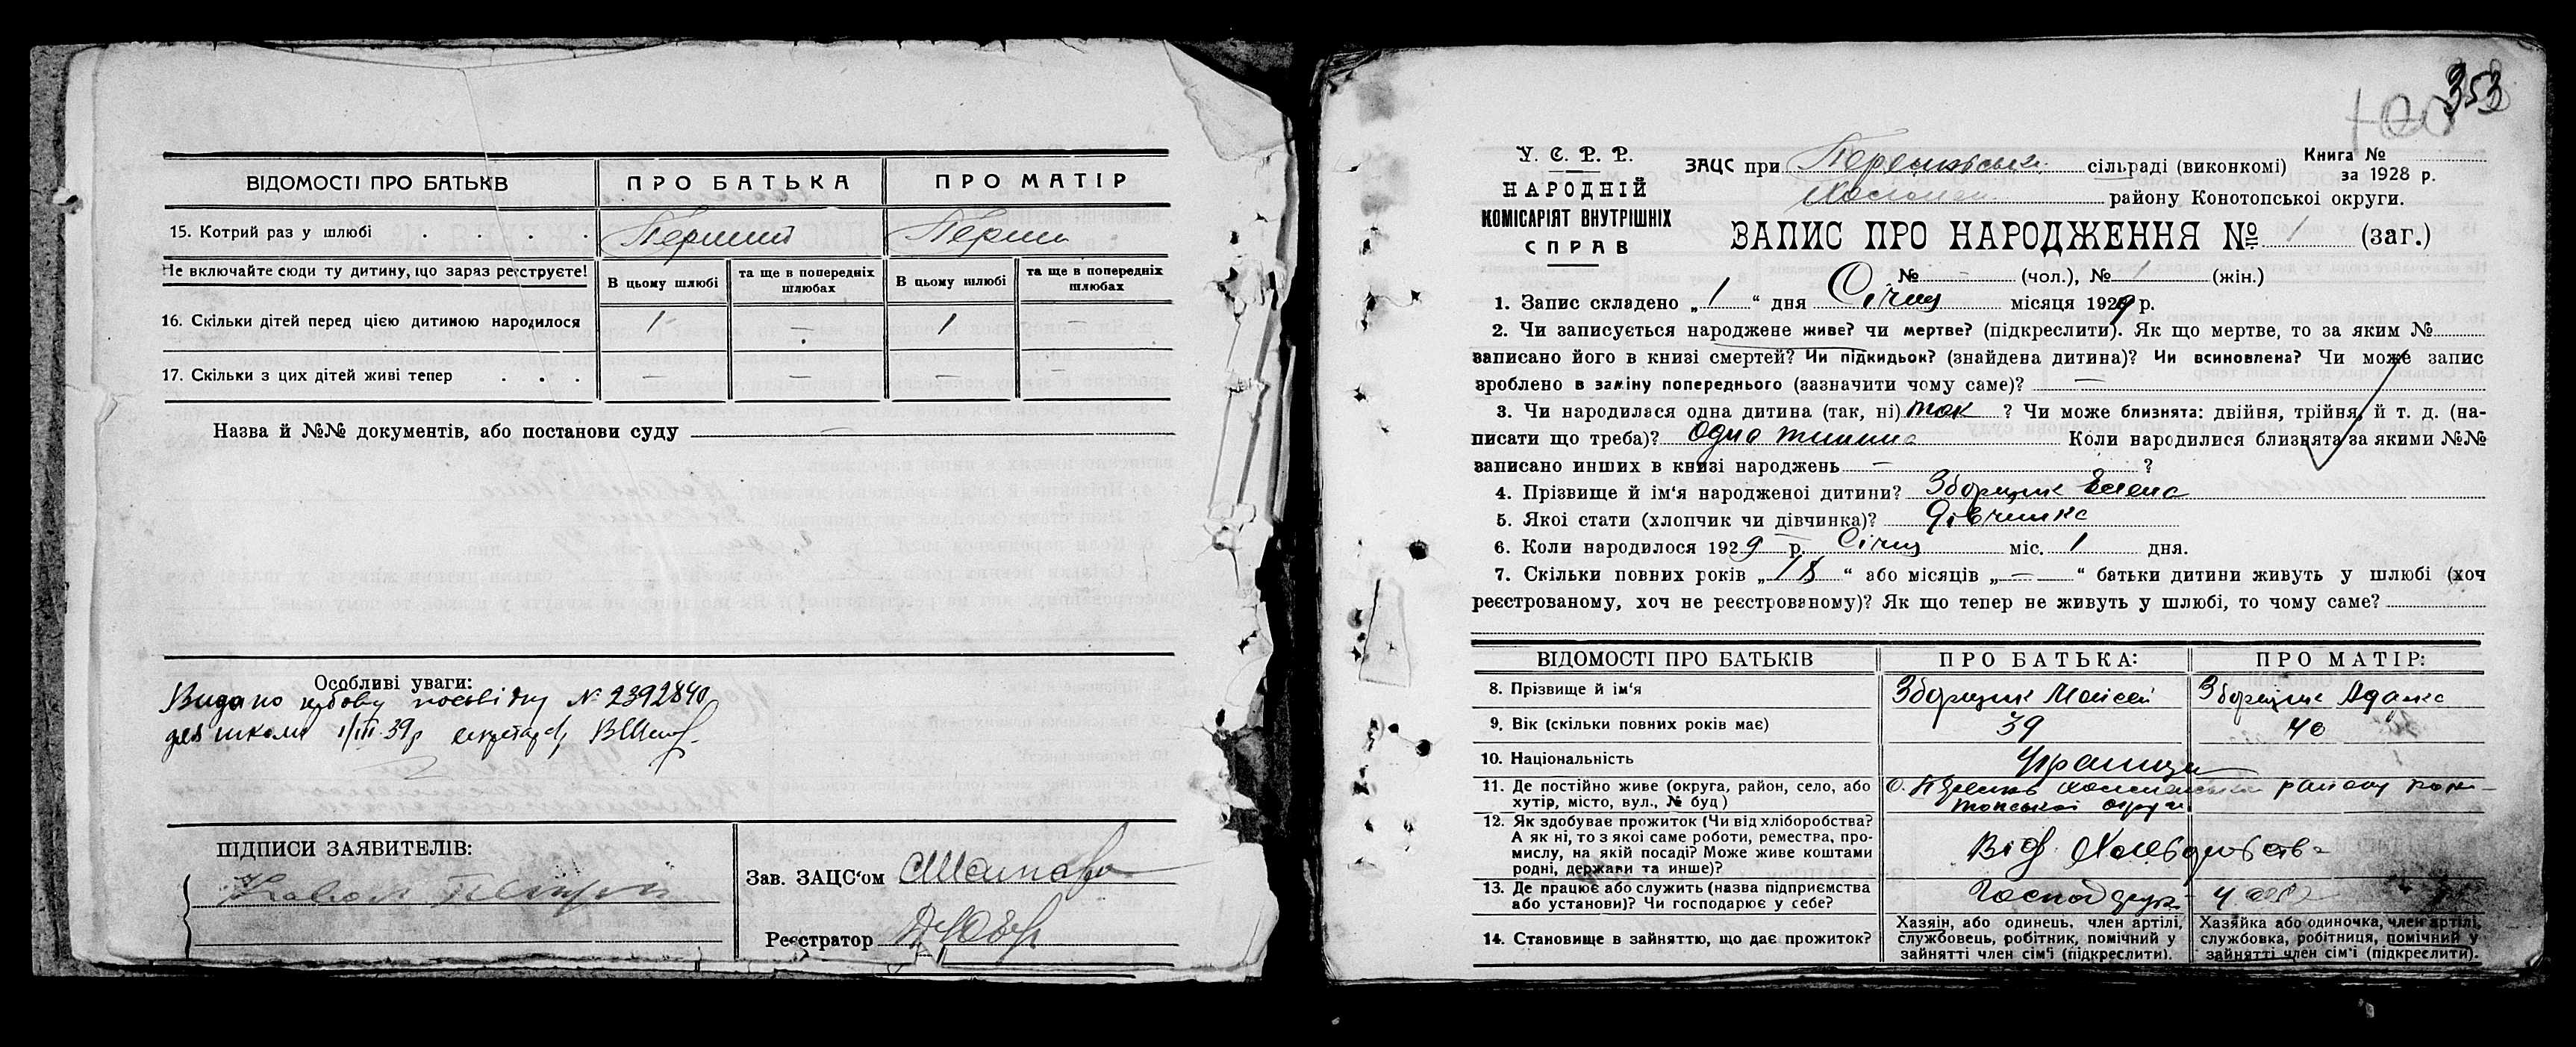 ВІДОМОСТІ ПРО БАТЬКВ
ПРО БАТЬКА
ПРО МАТІР
15. Котрий раз у шлюбі . . . .
Перший
Перши
Не включайте сюди ту дитину, що зараз реєструєте!
В цьому шлюбі
та ще в попередніх шлюбах
В цьому шлюбі
та ще в попередніх шлюбах
16. Скільки дітей перед цією дитиною народилося
1 — 1 —
17. Скільки з цих дітей живі тепер . . .
— — — —
Назва й №№ документів, або постанови суду —
Особливі уваги:
Видано нову посвідку № 2392840
для школи 1/III 39 р секретар с/р
ПІДПИСИ ЗАЯВИТЕЛІВ:
Зав. ЗАЦС'ом
Реєстратор
353
100
У. С. Р. Р.
НАРОДНІЙ
КОМІСАРІЯТ ВНУТРІШНІХ
СПРАВ
ЗАЦС при сільраді (виконкомі)
Книга №
за 1928 р.
району Конотопської округи.
ЗАПИС ПРО НАРОДЖЕННЯ № 1 (заг.)
№ — (чол.), № 1 (жін.)
1. Запис складено „ 1 “ дня Січня місяця 1929 р.
2. Чи записується народжене живе? чи мертве? (підкреслити). Як що мертве, то за яким №
записано його в книзі смертей? Чи підкидьок? (знайдена дитина)? Чи всиновлена? Чи може запис
зроблено в заміну попереднього (зазначити чому саме)? —
3. Чи народилася одна дитина (так, ні) так ? Чи може близнята: двійня, трійня, й т. д. (на-
писати що треба)? Одна Коли народилися близнята за якими №№
записано инших в книзі народжень — ?
4. Прізвище й ім'я народженої дитини? Зборщик Елена
5. Якої стати (хлопчик чи дівчинка)? Дівчинка
6. Коли народилося 1929 р. Січня міс. 1 дня.
7. Скільки повних років „ 18 “ або місяців „ — “ батьки дитини живуть у шлюбі (хоч
реєстрованому, хоч не реєстрованому)? Як що тепер не живуть у шлюбі, то чому саме?
ВІДОМОСТІ ПРО БАТЬКІВ
ПРО БАТЬКА:
ПРО МАТІР:
8. Прізвище й ім'я
Зборщик Мойсей
Зборщик
9. Вік (скільки повних років має)
39
40
10. Національність
Українці
11. Де постійно живе (округа, район, село, або
хутір, місто, вул., № буд)
району Коно-
топської округи
12. Як здобуває прожиток (Чи від хліборобства?
А як ні, то з якої саме роботи, ремества, про-
мислу, на якій посаді? Може живе коштами
родні, держави та инше)?
Від Хліборобства
13. Де працює або служить (назва підприємства
або установи)? Чи господарює у себе?
14. Становище в зайняттю, що дає прожиток?
Хазяін, або одинець, член артілі,
службовець, робітник, помічний у
зайнятті член сім'ї (підкреслити).
Хазяйка або одиночка, член артілі,
службовка, робітниця, помічний у
зайнятті член сім'ї (підкреслити).